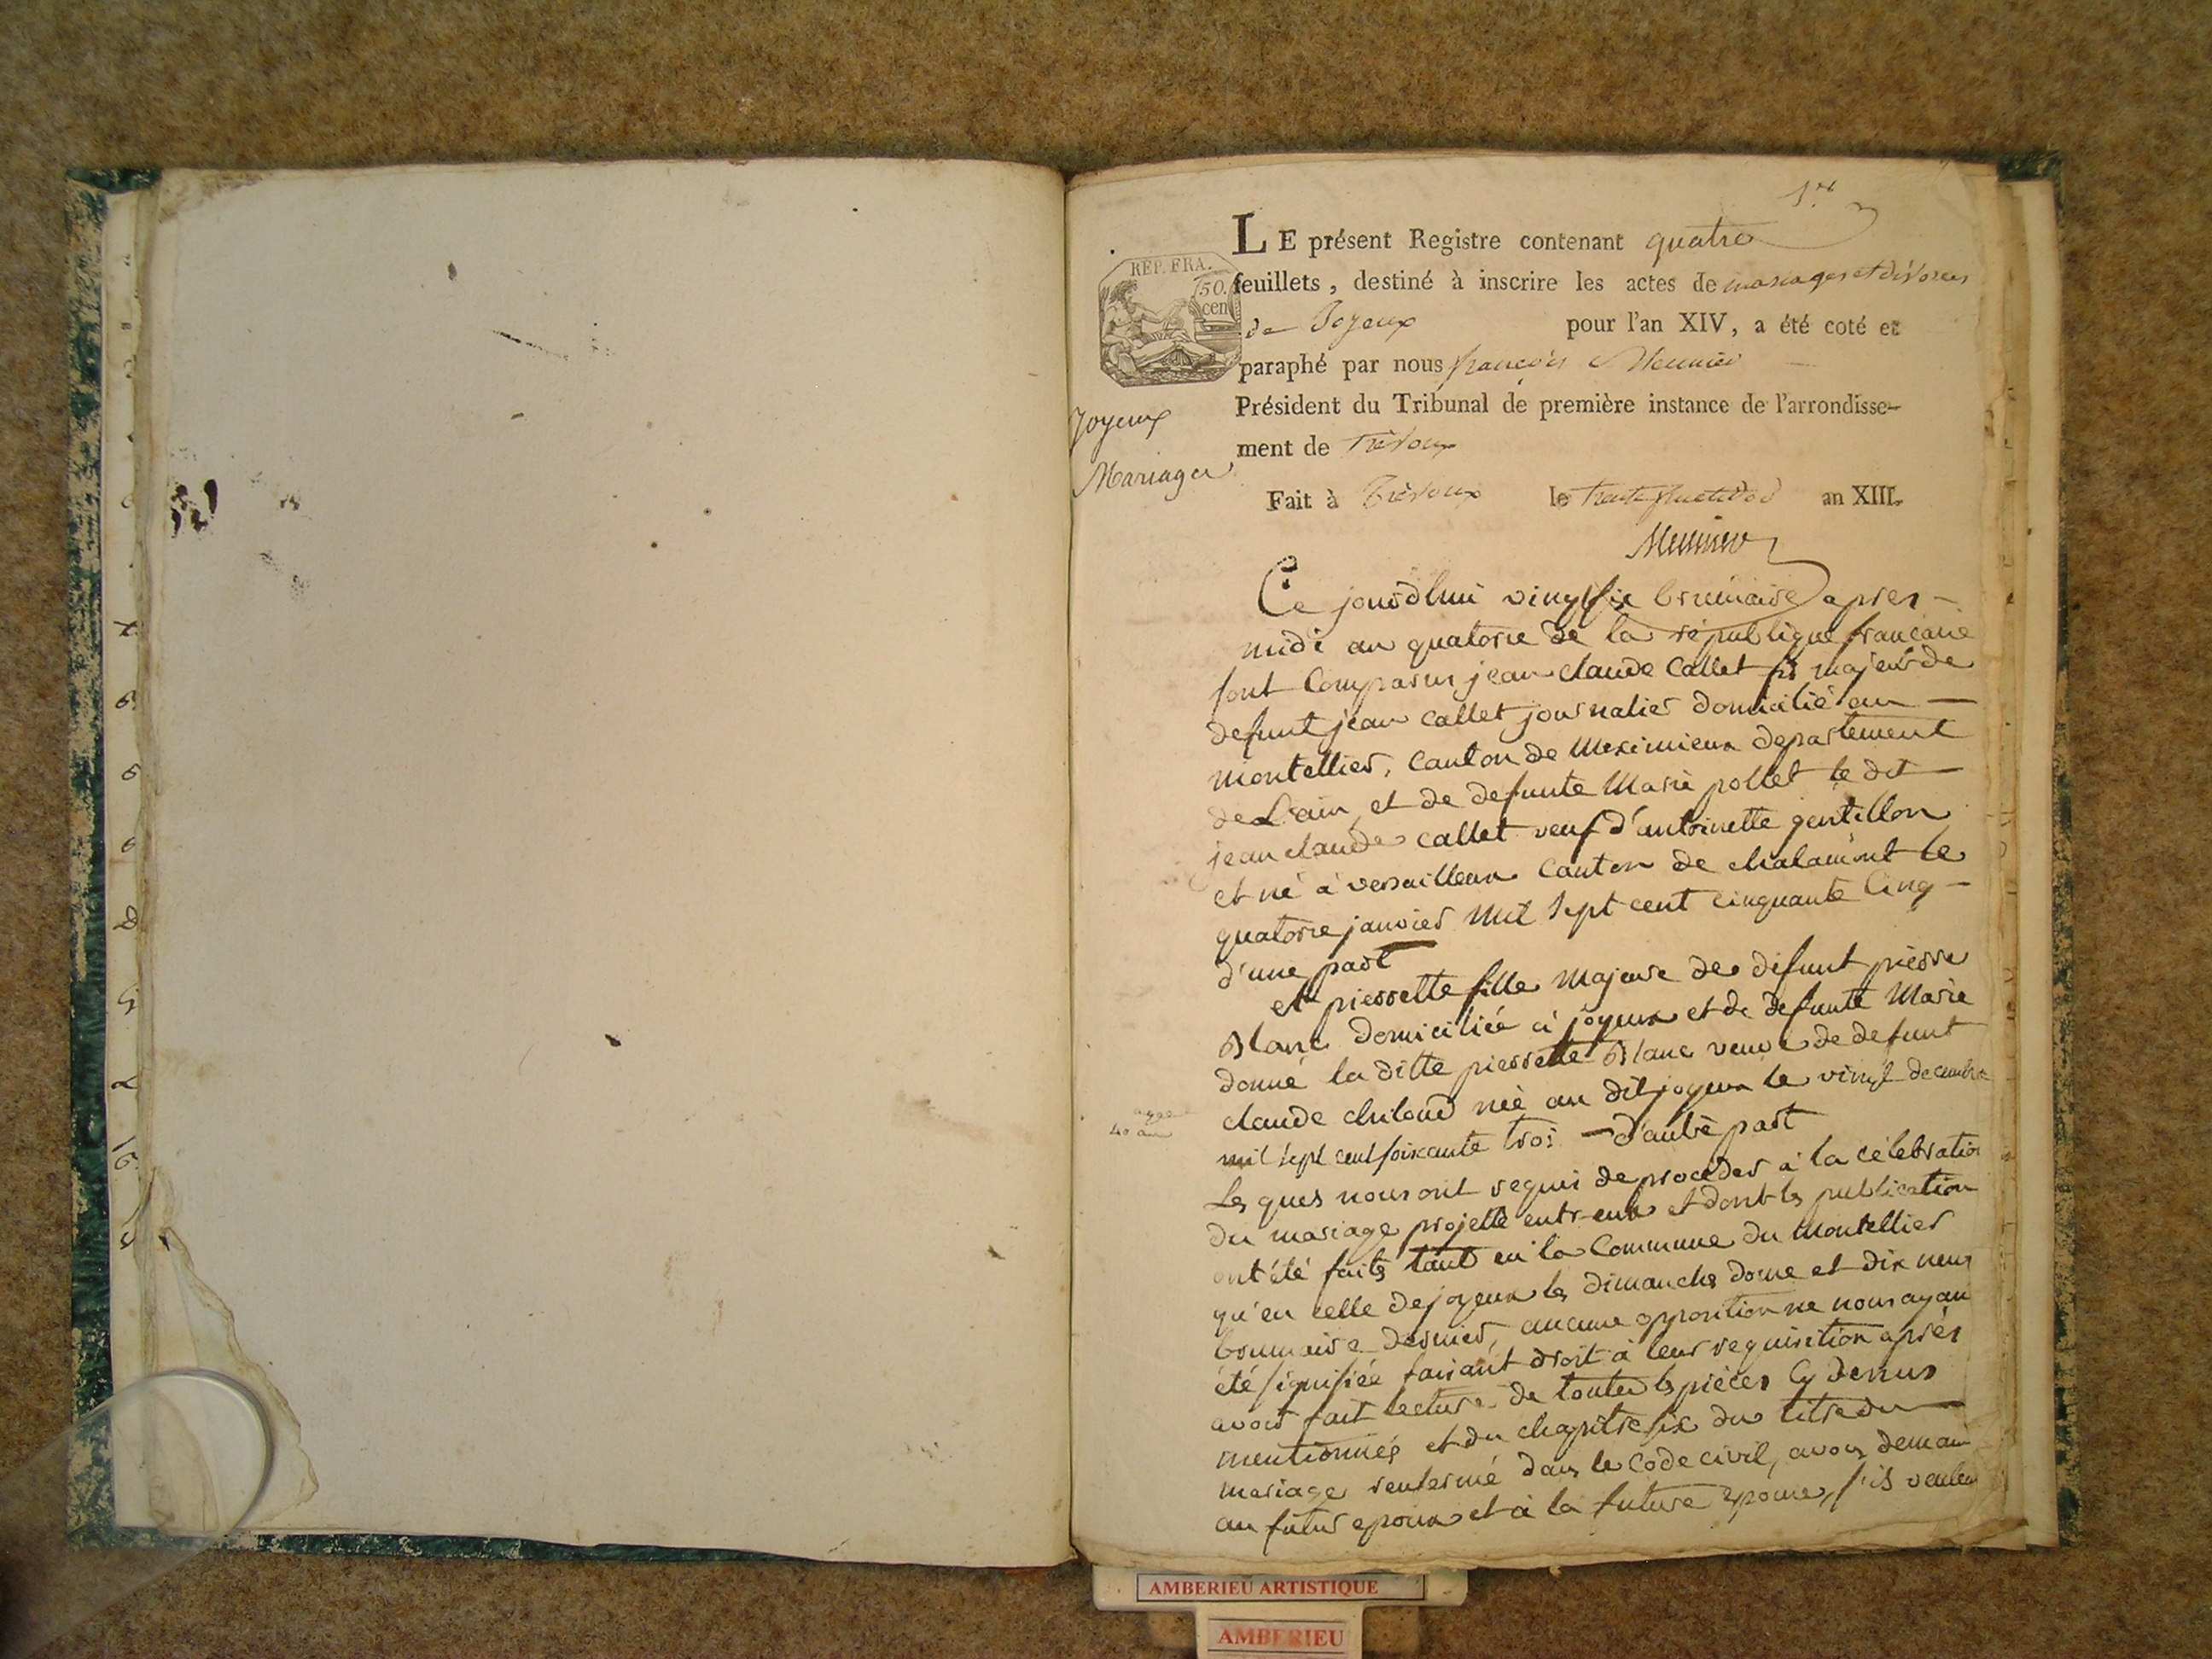 1er
LE présent Registre contenant quatre
feuillets, destiné à inscrire les actes de mariages et divorces
de Joyeux pour l'an XIV, a été coté et
paraphé par nous françois Meunier
Président du Tribunal de première instance de l'arrondisse-
ment de Trévoux
Fait à Trévoux le trente fructidor an XIII.
Meunier
REP. FRA.
50.
cen
Joyeux
Mariages
Ce jourdhui vingt six brumaire apres-
midi an quatorze de la république francaise
sont Comparus jean claude Callet fils majeur de
defunt jean callet journalier domicilié au
montellier, canton de Meximieux departement
de L'ain et de defunte Marie pollet le dit
jean claude callet veuf d'antoinette gentillon
et né a versailleux canton de chalamont le
quatorze janvier mil sept cent cinquante cinq
d'une part
et pierrette fille majeure de défunt pierre
Blanc domiciliée à joyeux et de defunte Marie
donné la ditte pierrette Blanc veuve de defunt
claude née au dit joyeux le vingt decembre
mil sept cent soixante trois d'autre part
40 an
Les ques nous ont requis de procéder a la célébration
du mariage projetté entr-eux et dont les publication
ont été faits tant en la Commune du montellier
qu'en celle de joyeux les dimanches douze et dix neuf
brumaire dernier, aucune opposition ne nous ayan
été signifiée faisant droit a leur requisition après
avoir fait lecture de toutes les pièces cy dessus
mentionnés et du chapitre six du titre du
mariage renfermé dans le Code civil, avons deman
au futur epoux et à la future epouse, s'ils veulen
AMBERIEU ARTISTIQUE
AMBERIEU